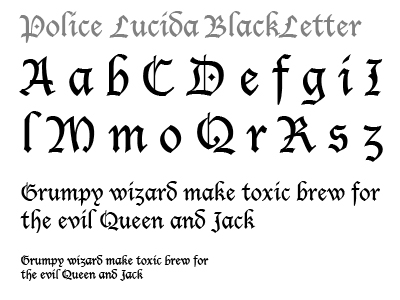 Police Lucida BlackLetter
A a b C D e f g i I
l M m o Q r R s z
Grumpy wizard make toxic brew for
the evil Queen and Jack
Grumpy wizard make toxic brew for
the evil Queen and Jack